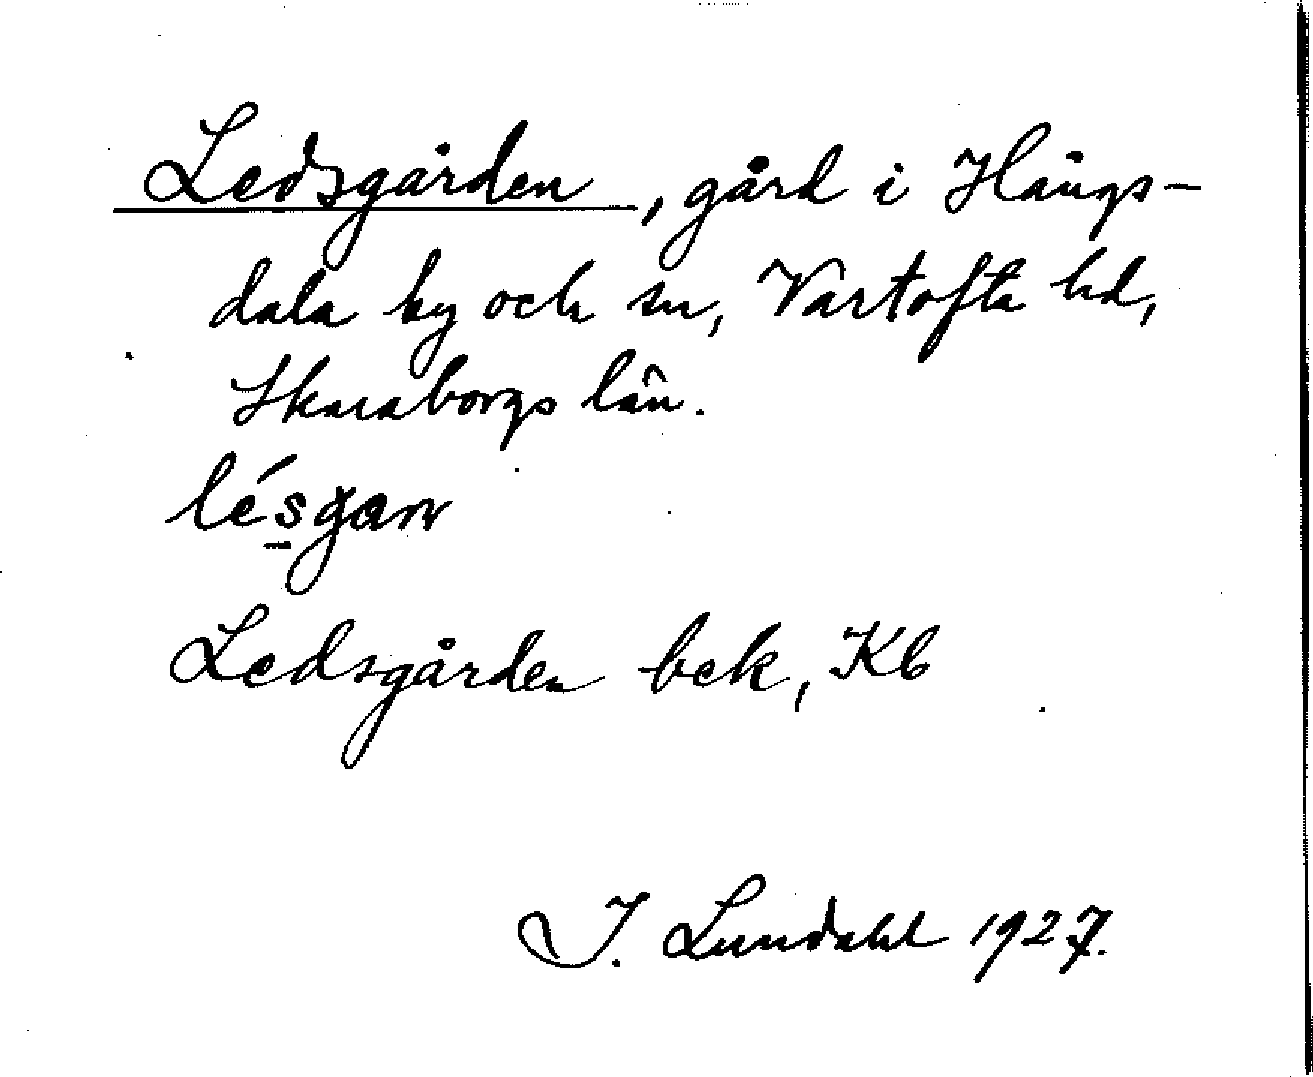 Ledsgården, gård i Hångs-
dala by och sn, Vartofta hd,
Skaraborgs län.
lésgarv
Ledsgården bek, Kb
I. Lundahl 1927.